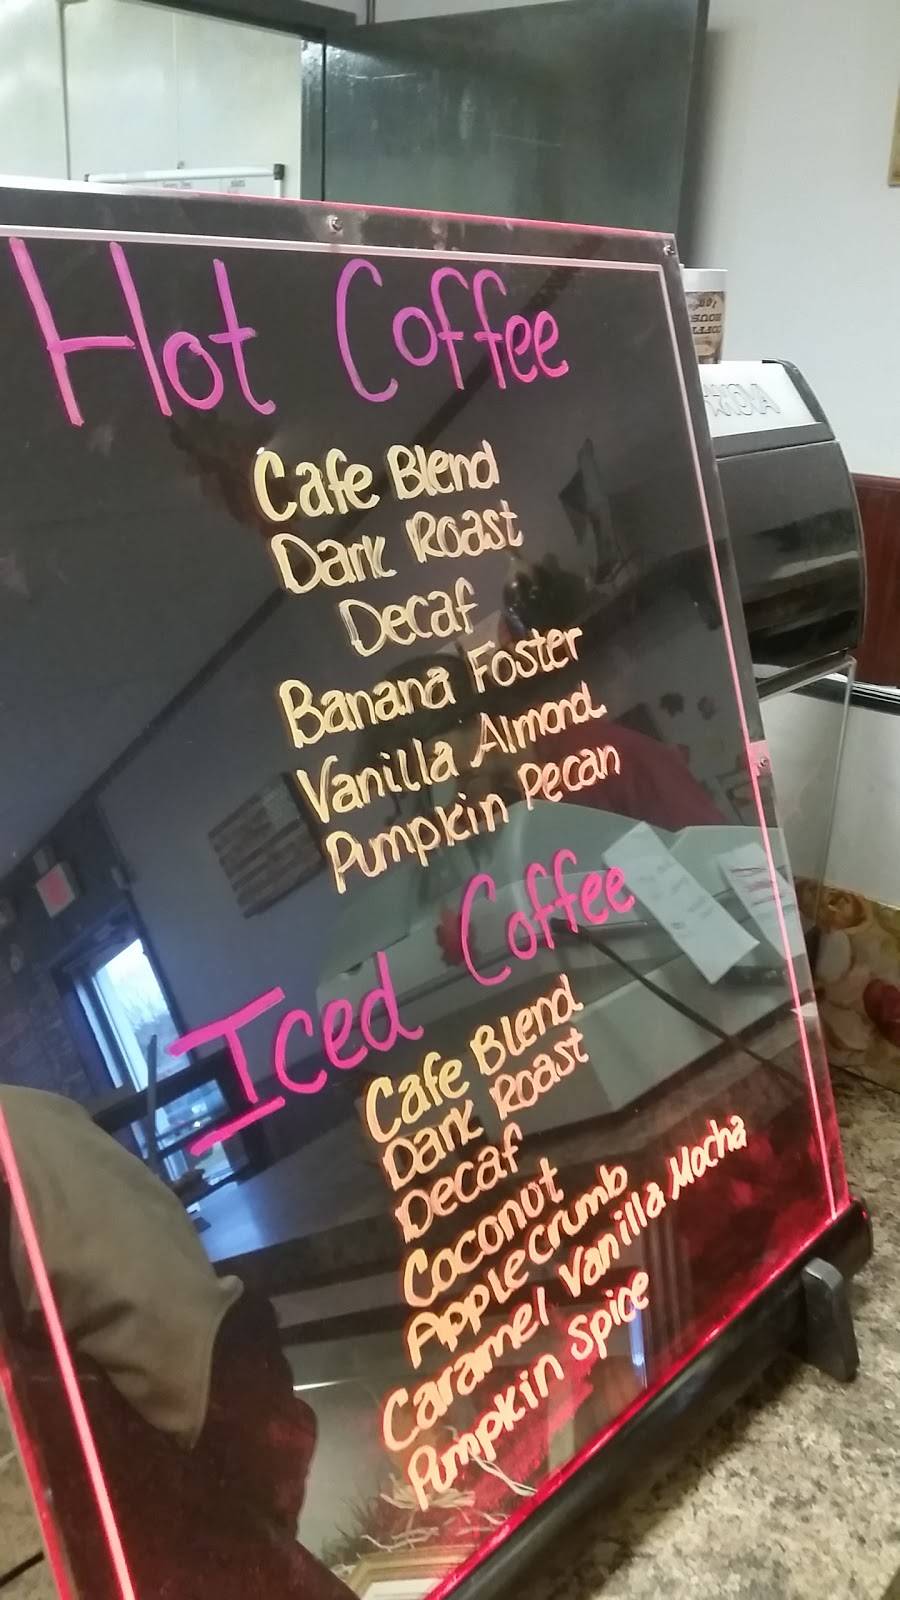 Hot Coffee
Cafe Blend
Dark Roast
Decaf
Banana Foster
Vanilla Almond
Pumpkin Pecan
Iced Coffee
Cafe Blend
Dark Roast
Decaf
Coconut
Apple Crumb
Caramel Vanilla Mocha
Pumpkin Spice